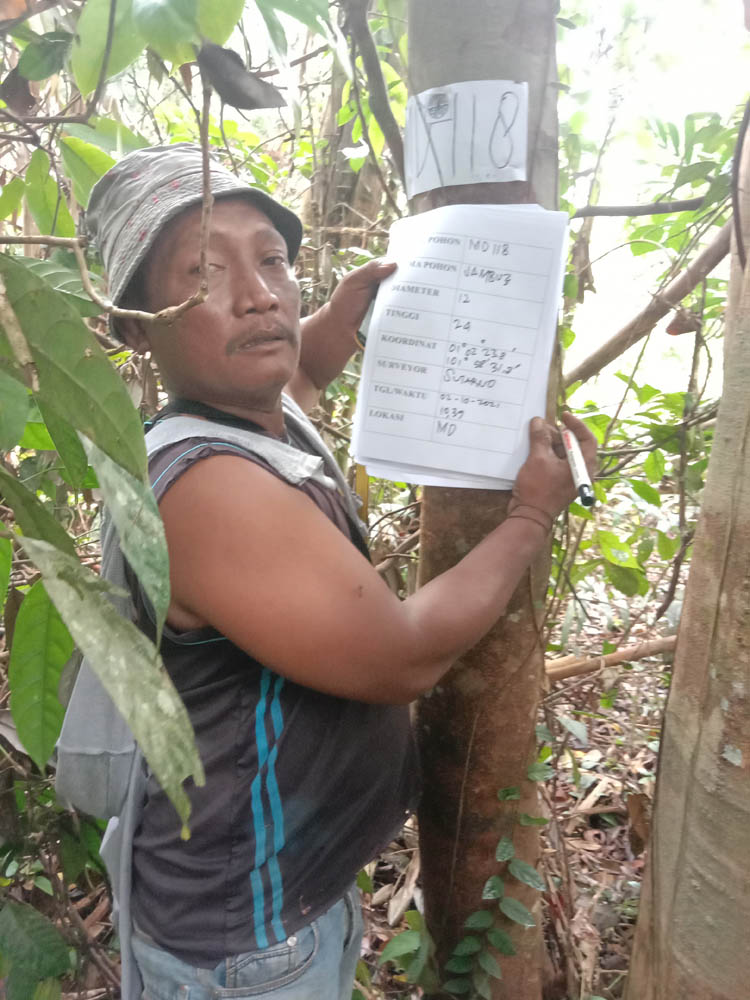 118
POHON MD 118
MA POHON JAMBU2
DIAMETER 12
TINGGI 24
KOORDINAT 01° 02' 23.8"
101° 58' 31.2"
SURVEYOR
TGL/WAKTU 02-10-2021
1539
LOKASI MD